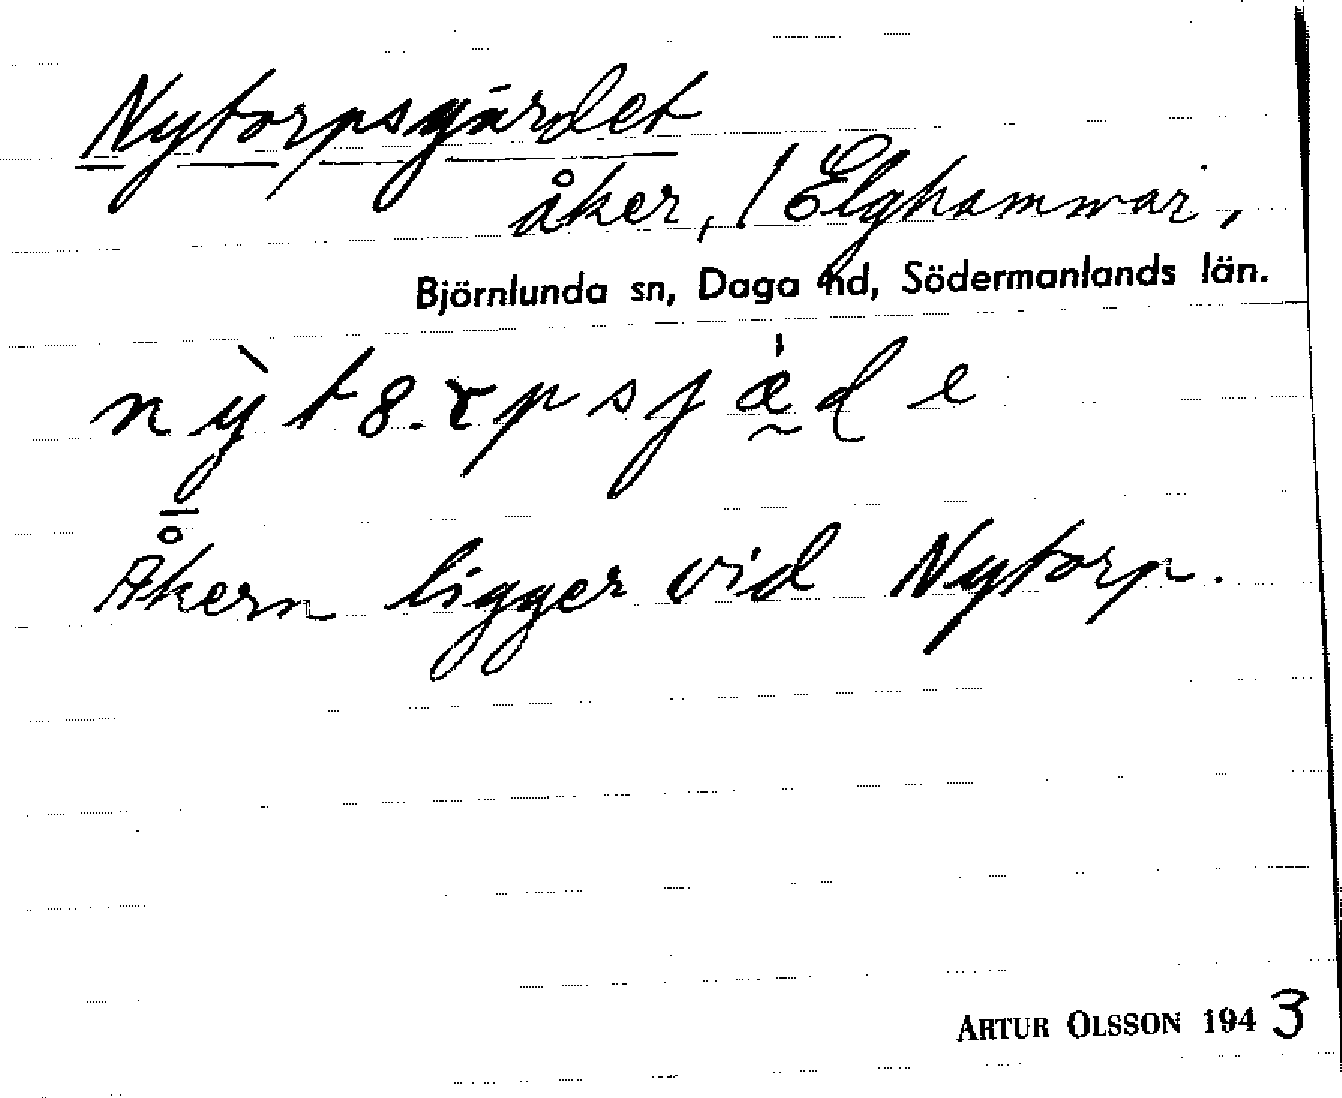 Nytorpsgärdet
åker, / Elghammar,
Björnlunda sn, Daga hd, Södermanlands län.
Åkern ligger vid Nytorp.
ARTUR OLSSON 1943